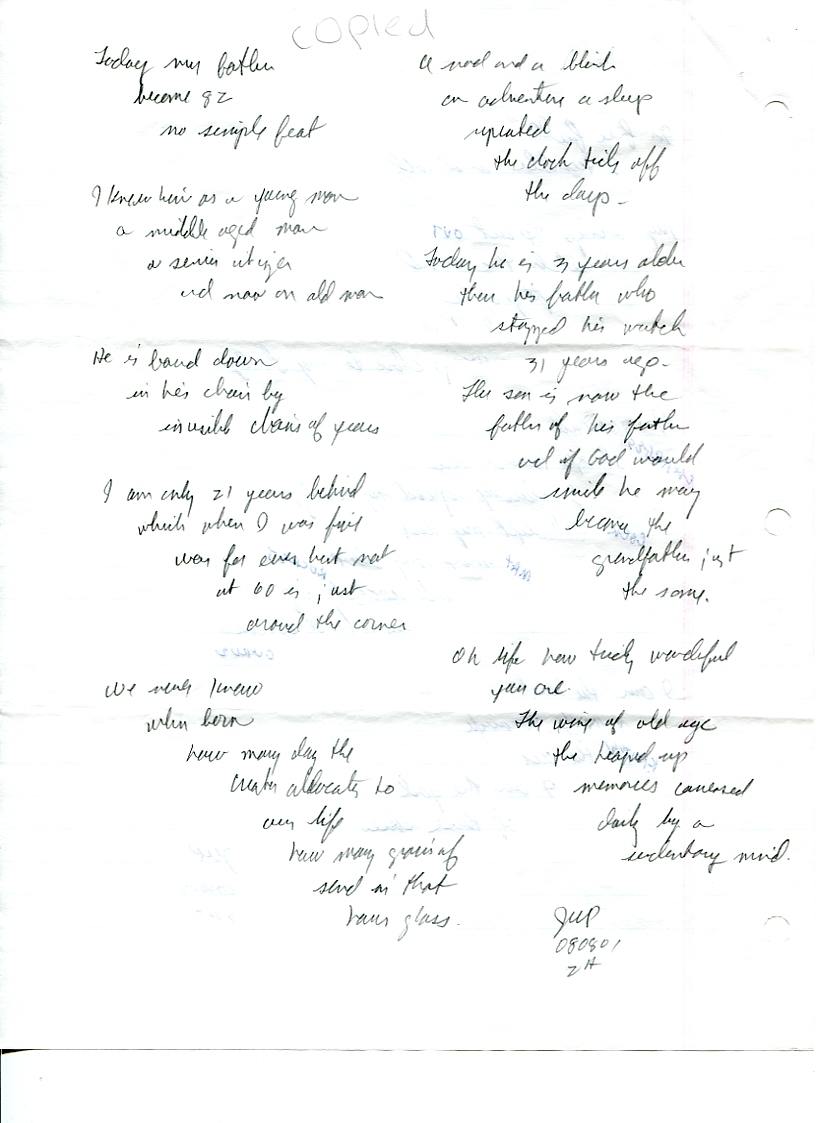 copied
Today my father
become 82
no simple feat
I knew him as a young man
a middle aged man
a senior citizen
and now an old man
He is bound down
in his chair by
invisible chains of years
I am only 21 years behind
which when I was five
was for ever but not
at 60 is just
around the corner
We never know
when born
how many day the
creator allocates to
our life
how many grains of
sand in that
hour glass.
A nod and a blink
an adventure a sleep
repeated
the clock ticks off
the days -
Today he is 3 years older
then his father who
stopped his watch
31 years ago.
The son is now the
father of his father
and if God would
smile he may
become the
grandfather just
the same.
Oh life how tricky wonderful
you are.
The wine of old age
the heaped up
memories
daily by a
sedentary mind.
JWP
080801
2H